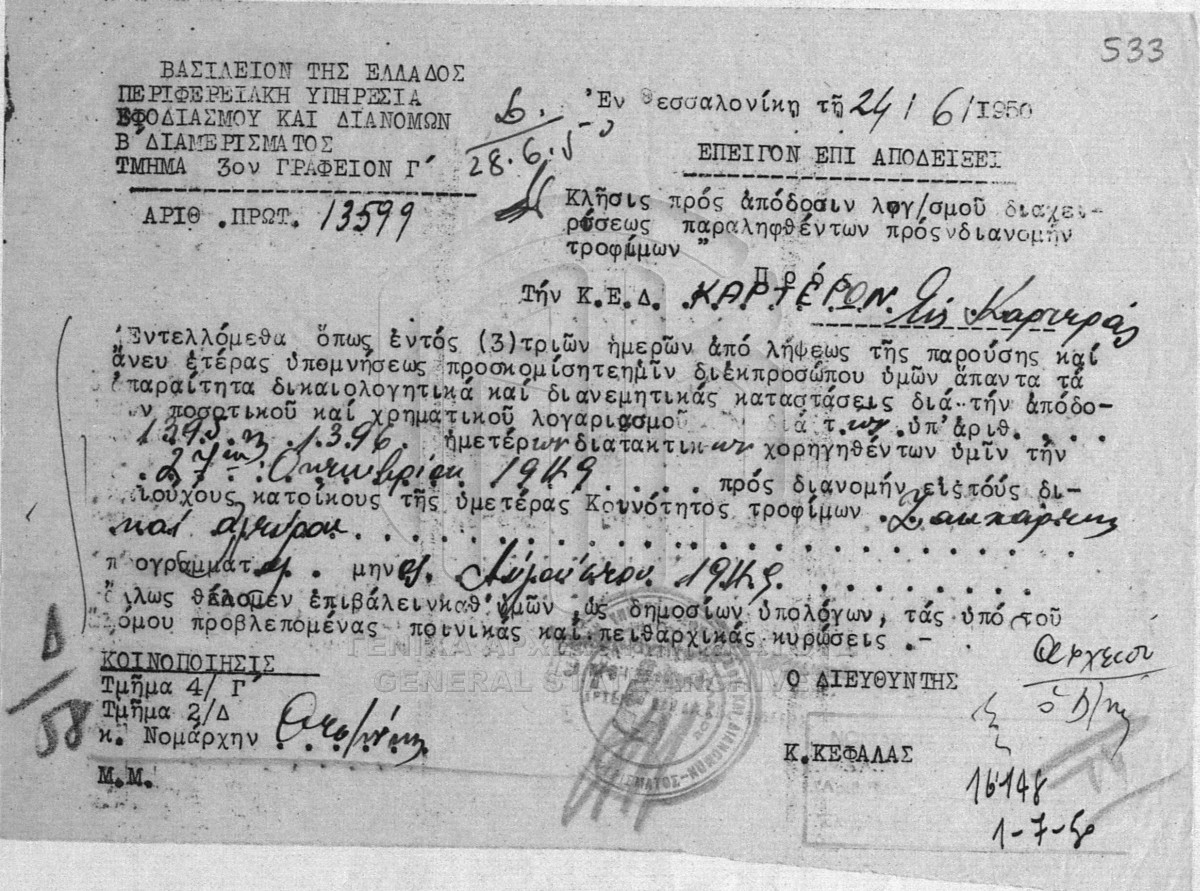 533
ΒΑΣΙΛΕΙΟΝ ΤΗΣ ΕΛΛΑΔΟΣ
ΠΕΡΙΦΕΡΕΙΑΚΗ ΥΠΗΡΕΣΙΑ
ΕΦΟΔΙΑΣΜΟΥ ΚΑΙ ΔΙΑΝΟΜΩΝ
Β΄ΔΙΑΜΕΡΙΣΜΑΤΟΣ
ΤΜΗΜΑ 3ον ΓΡΑΦΕΙΟΝ Γ΄
ΑΡΙΘ.ΠΡΩΤ. 13599
28.6.5
Ἐν Θεσσαλονίκῃ τῇ 24/6/1950
ΕΠΕΙΓΟΝ ΕΠΙ ΑΠΟΔΕΙΞΕΙ
Κλῆσις πρός ἀπόδοσιν λογ/σμοῦ διαχει-
ρίσεως παραληφθέντων πρός διανομήν
τροφίμων "
Πρός
Τήν Κ.Ε.Δ. ΚΑΡΤΕΡΩΝ Εἰς Καρτεράς
Ἐντελλόμεθα ὅπως ἐντός (3)τριῶν ἡμερῶν ἀπό λήψεως τῆς παρούσης καί
ἄνευ ἑτέρας ὑπομνήσεως προσκομίσητεἡμῖν διἐκπροσώπου ὑμῶν ἅπαντα τά
ἀπαραίτητα δικαιολογητικά καί διανεμητικάς καταστάσεις διά τήν ἀπόδο-
ιν ποσοτικοῦ καί χρηματικοῦ λογαριασμοῦ διά τ.ων.ὑπ'ἀριθ. . . .
1395. .1396. ἡμετέρων διατακτικων χορηγηθέντων ὑμῖν τήν
.27ην. Οκτωβρίου 1949 . . . . πρός διανομήν εἰςτούς δι-
αιούχους κατοίκους τῆς ὑμετέρας Κοινότητος τροφίμων .Ζακχάρεως
και αλεύρου. . . . . . . . . . . . . . . . . . . .
προγραμματ . μηνος. Αὐγούστου. 1949. . . . . . . .
ἄλλως θέλομεν ἐπιβάλεινκαθ'ὑμῶν ὡς δημοσίων ὑπολόγων, τάς ὑπό τοῦ
Νόμου προβλεπομένας ποινικάς καί πειθαρχικάς κυρώσεις .-
Δ/58
ΚΟΙΝΟΠΟΙΗΣΙΣ
Τμῆμα 4/ Γ΄
Τμῆμα 2/Δ
κ. Νομάρχην Θεσ/νίκης
Μ.Μ.
Ο ΔΙΕΥΘΥΝΤΗΣ
Κ.ΚΕΦΑΛΑΣ
Αρχεῖον
ὁ Δ/της
16148
1-7-50
ΓΕΝΙΚΑ ΑΡΧΕΙΑ
GENERAL STATE ARCHIVES